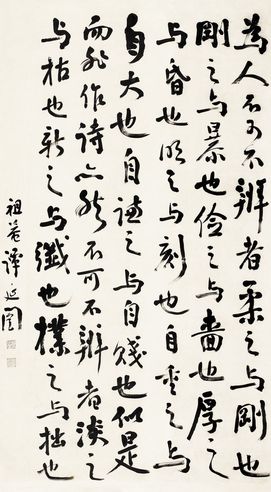 為人不可不辨者柔之与弱也
剛之与暴也儉之与嗇也厚之
与昏也明之与刻也自重之与
自大也自謙之与自賤也似是
而非作詩亦然不可不辨者淡之
与枯也新之与纖也樸之与拙也
祖菴譚延闓